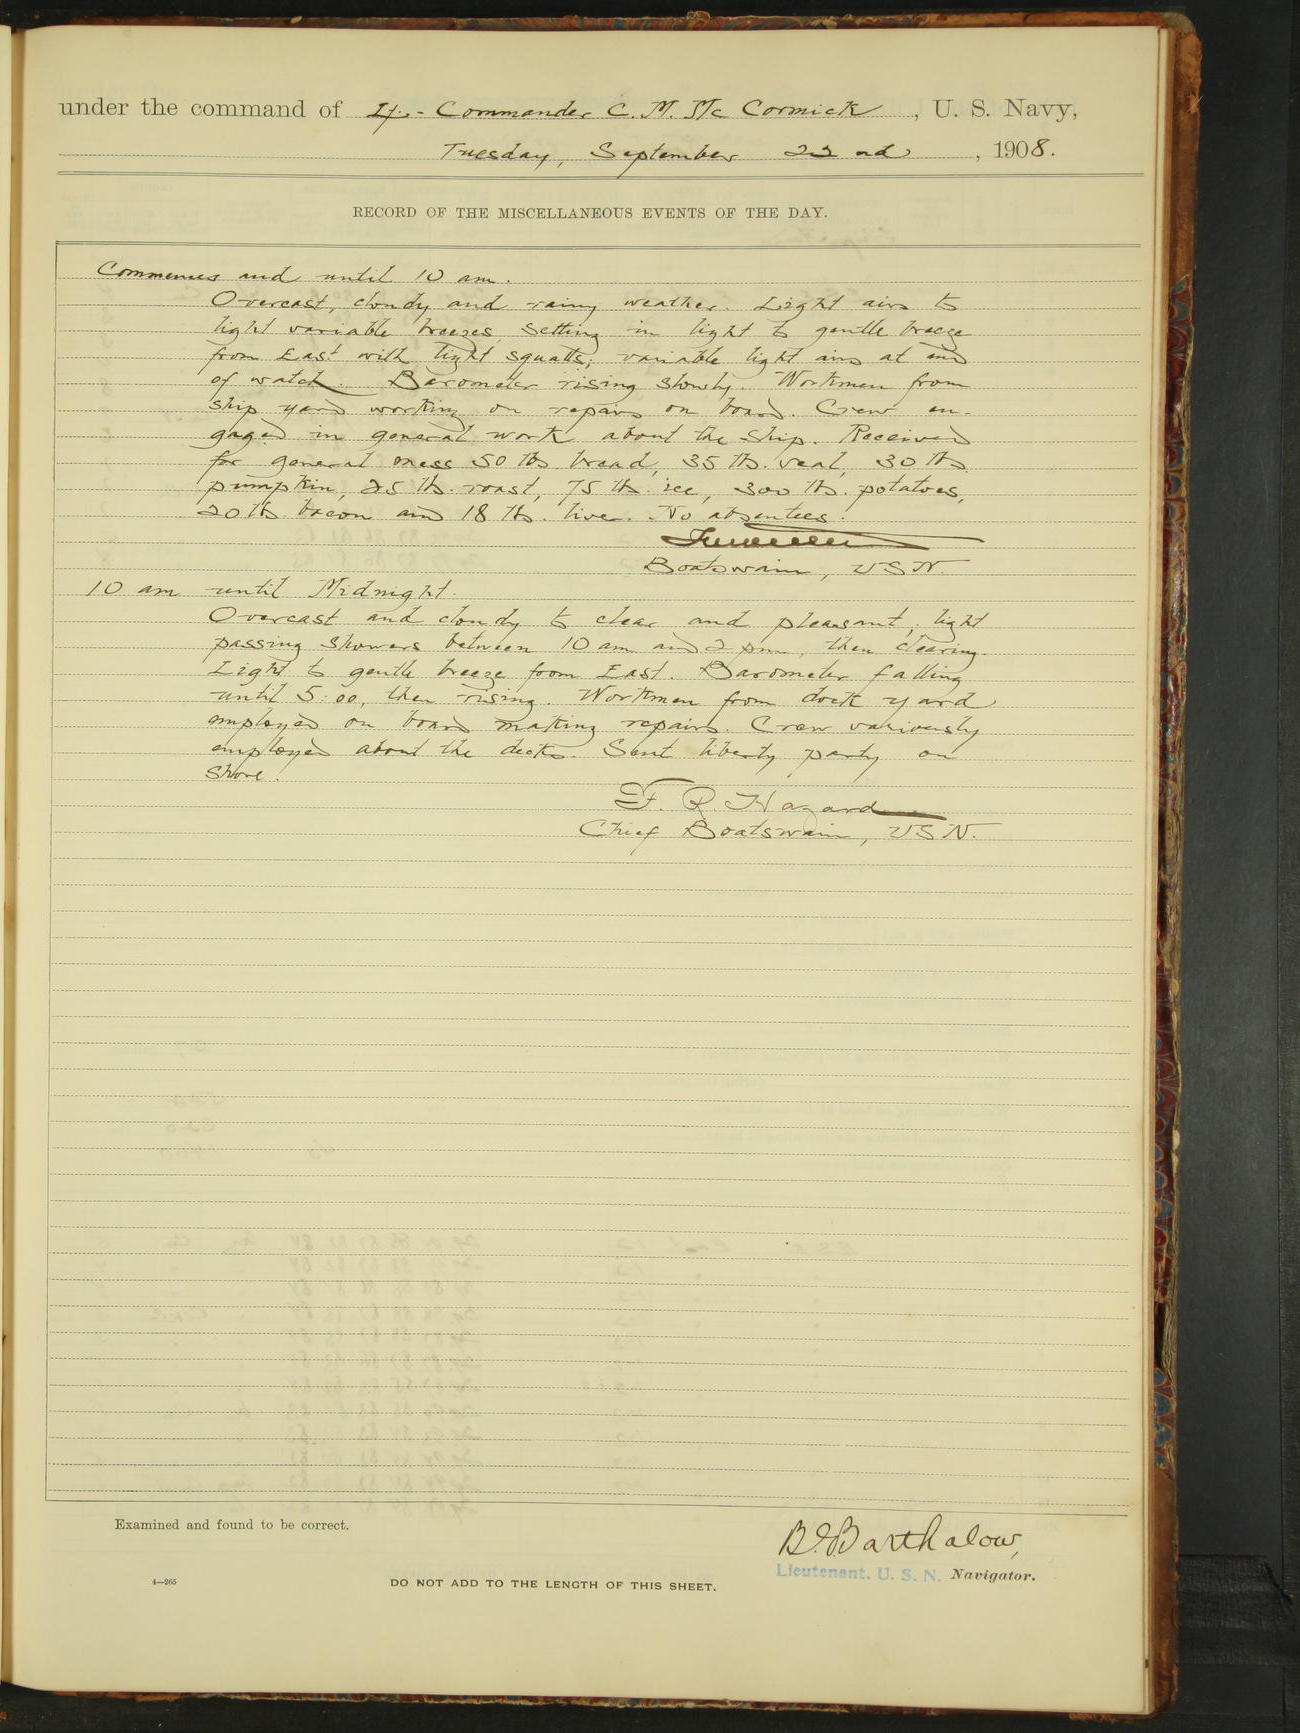 under the command of Lt.- Commander C. M. Mc Cormick, U. S. Navy,
Tuesday, September 22nd, 1908.
RECORD OF THE MISCELLANEOUS EVENTS OF THE DAY.
Commences and until 10 am.
Overcast, cloudy and rainy weather. Light airs to
light variable breezes, setting in light to gentle breeze
from East with light squalls; variable light airs at end
of watch. Barometer rising slowly. Workmen from
ship yard working on repairs on board. Crew en-
gaged in general work about the ship. Received
for general mess 50 lbs bread, 35 lbs. veal, 30 lbs
pumpkin, 25 lbs. roast, 75 lbs. ice, 300 lbs. potatoes,
20 lbs bacon and 18 lbs. liver. No absentees.
Boatswain, USN.
10 am until Midnight.
Overcast and cloudy to clear and pleasant; light
passing showers between 10 am and 2 pm, then clearing.
Light to gentle breeze from East. Barometer falling
until 5:00, then rising. Workmen from dock yard
employed on board making repairs. Crew variously
employed about the decks. Sent liberty party on
shore.
F. R. Hazard
Chief Boatswain, USN.
Examined and found to be correct.
B. Barthalow,
Lieutenant, U. S. N. Navigator.
4—265
DO NOT ADD TO THE LENGTH OF THIS SHEET.